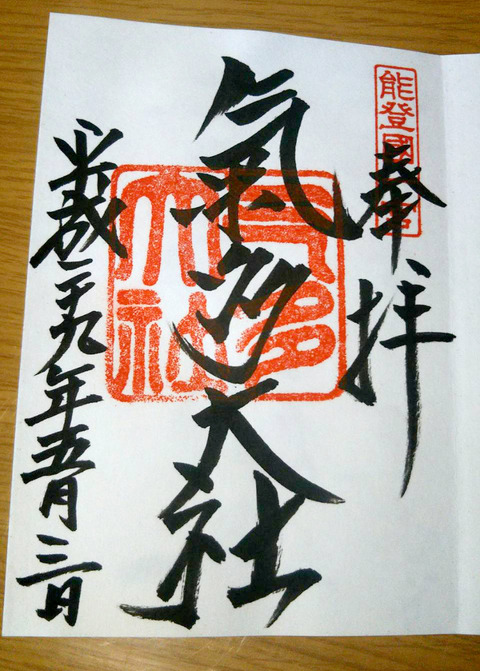 能登國一宮
奉拝
氣多大社
氣多大社
平成二十九年五月三日